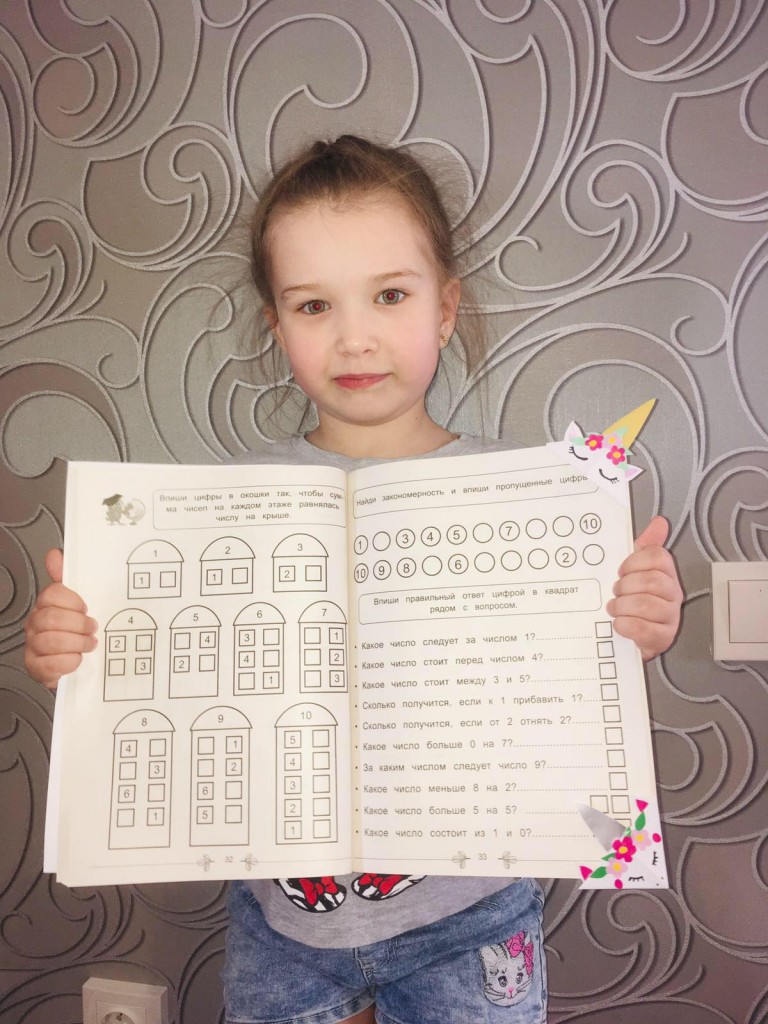 Впиши цифры в окошки так, чтобы сум-
ма чисел на каждом этаже равнялась
числу на крыше.
1 2 3
1 1 2
4 5 6 7
2 4 3 1
3 2 4 2
1 3
8 9 10
4 1 5
3 2 4
6 6 3
1 5 2
1
32
Найди закономерность и впиши пропущенные цифры
1 3 4 5 7 10
10 9 8 6 2
Впиши правильный ответ цифрой в квадрат
рядом с вопросом.
• Какое число следует за числом 1?
• Какое число стоит перед числом 4?
• Какое число стоит между 3 и 5?
• Сколько получится, если к 1 прибавить 1?
• Сколько получится, если от 2 отнять 2?
• Какое число больше 0 на 7?
• За каким числом следует число 9?
• Какое число меньше 8 на 2?
• Какое число больше 5 на 5?
• Какое число состоит из 1 и 0?
33